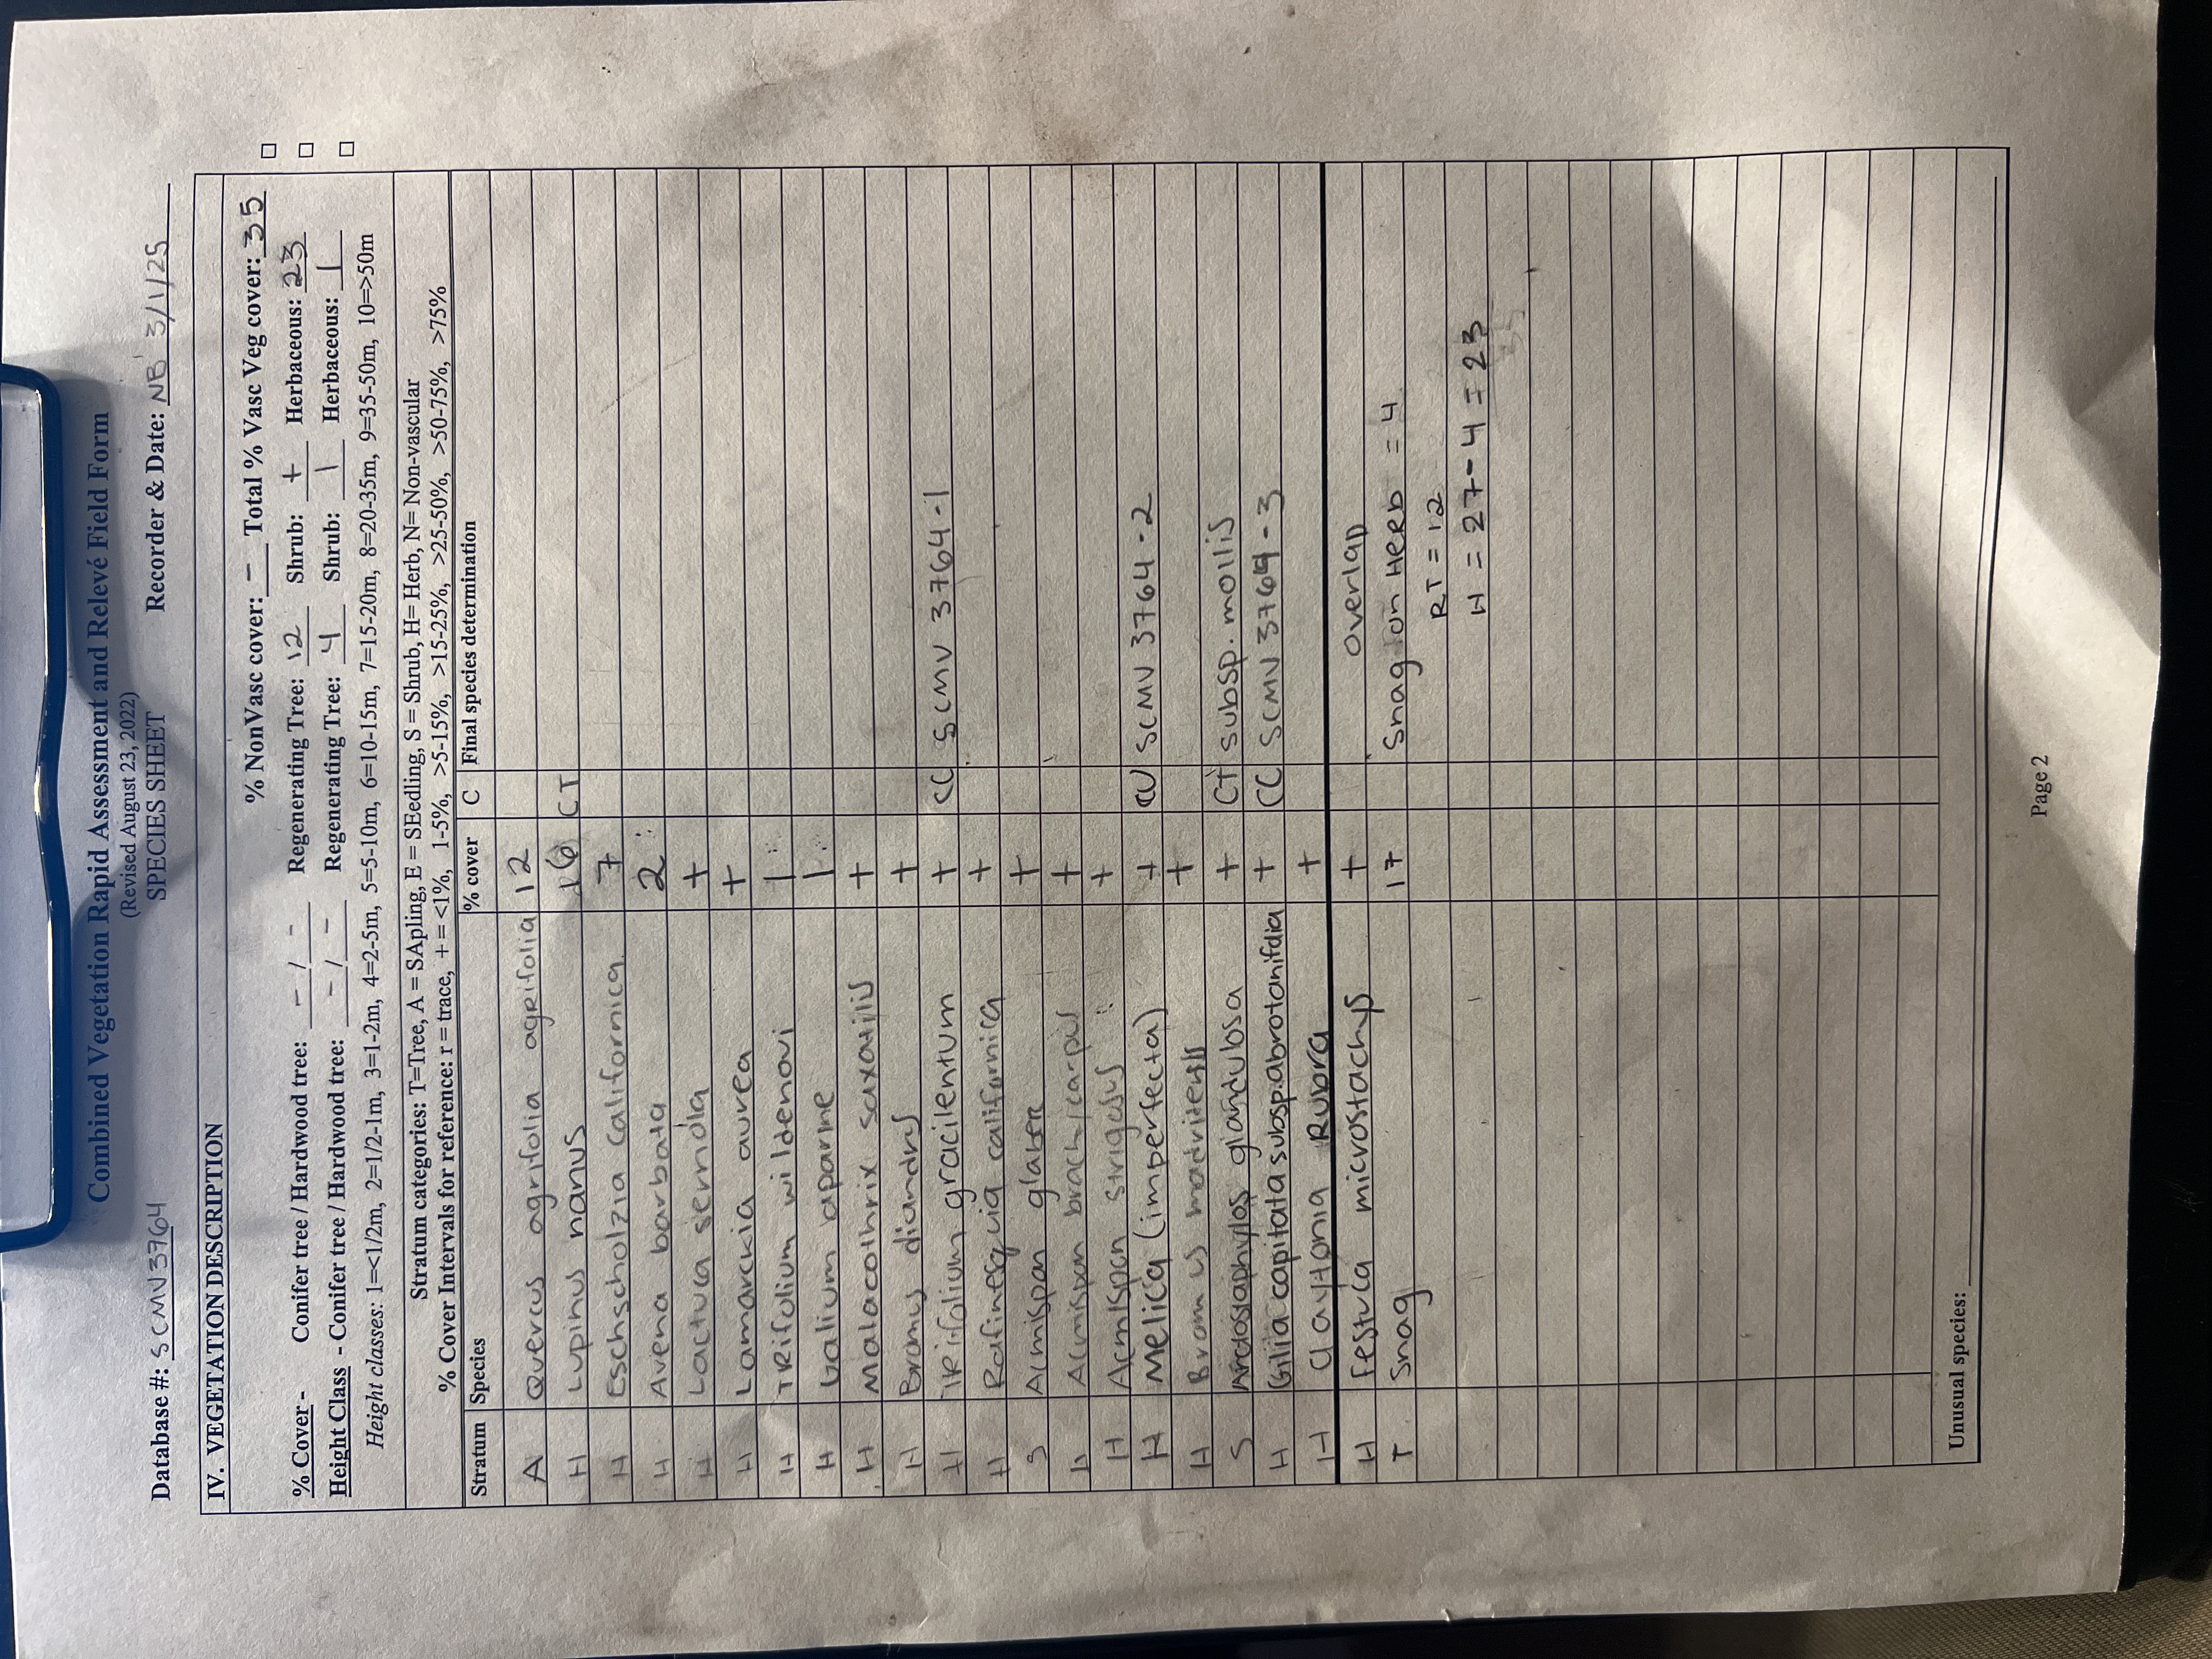 Combined Vegetation Rapid Assessment and Relevé Field Form
(Revised August 23, 2022)
SPECIES SHEET
Database #: SCMV3764 Recorder & Date: NB 3/1/25
IV. VEGETATION DESCRIPTION
% NonVasc cover: - Total % Vasc Veg cover: 35
% Cover - Conifer tree / Hardwood tree: - / - Regenerating Tree: 12 Shrub: + Herbaceous: 23
Height Class - Conifer tree / Hardwood tree: - / - Regenerating Tree: 4 Shrub: 1 Herbaceous: 1
Height classes: 1=<1/2m, 2=1/2-1m, 3=1-2m, 4=2-5m, 5=5-10m, 6=10-15m, 7=15-20m, 8=20-35m, 9=35-50m, 10=>50m
Stratum categories: T=Tree, A = SApling, E = SEedling, S = Shrub, H= Herb, N= Non-vascular
% Cover Intervals for reference: r = trace, + = <1%, 1-5%, >5-15%, >15-25%, >25-50%, >50-75%, >75%
Stratum Species % cover C Final species determination
A Quercus agrifolia agrifolia 12
H Lupinus nanus 16 CT
H Eschscholzia californica 7
H Avena barbata 2
H Lactuca serriola +
H Lamarckia aurea +
H TRifolium wildenovi 1
H Galium aparine 1
H Malacothrix saxatilis +
H Bromus diandrus +
H TRifolium gracilentum + CC SCMV 3764-1
H Rafinesquia californica +
S Acmispon glaber +
H Acmispon brachycarpus +
H Acmispon strigosus +
H Melica (imperfecta) + CC SCMV 3764-2
H Bromus madritensis +
S Arctostaphylos glandulosa + CT subsp. mollis
H Gilia capitata subsp. abrotanifolia + CC SCMV 3764-3
H Claytonia Rubra +
H Festuca microstachys + overlap
T Snag 17 Snag on Herb = 4
RT = 12
H = 27-4 = 23
Unusual species:
Page 2